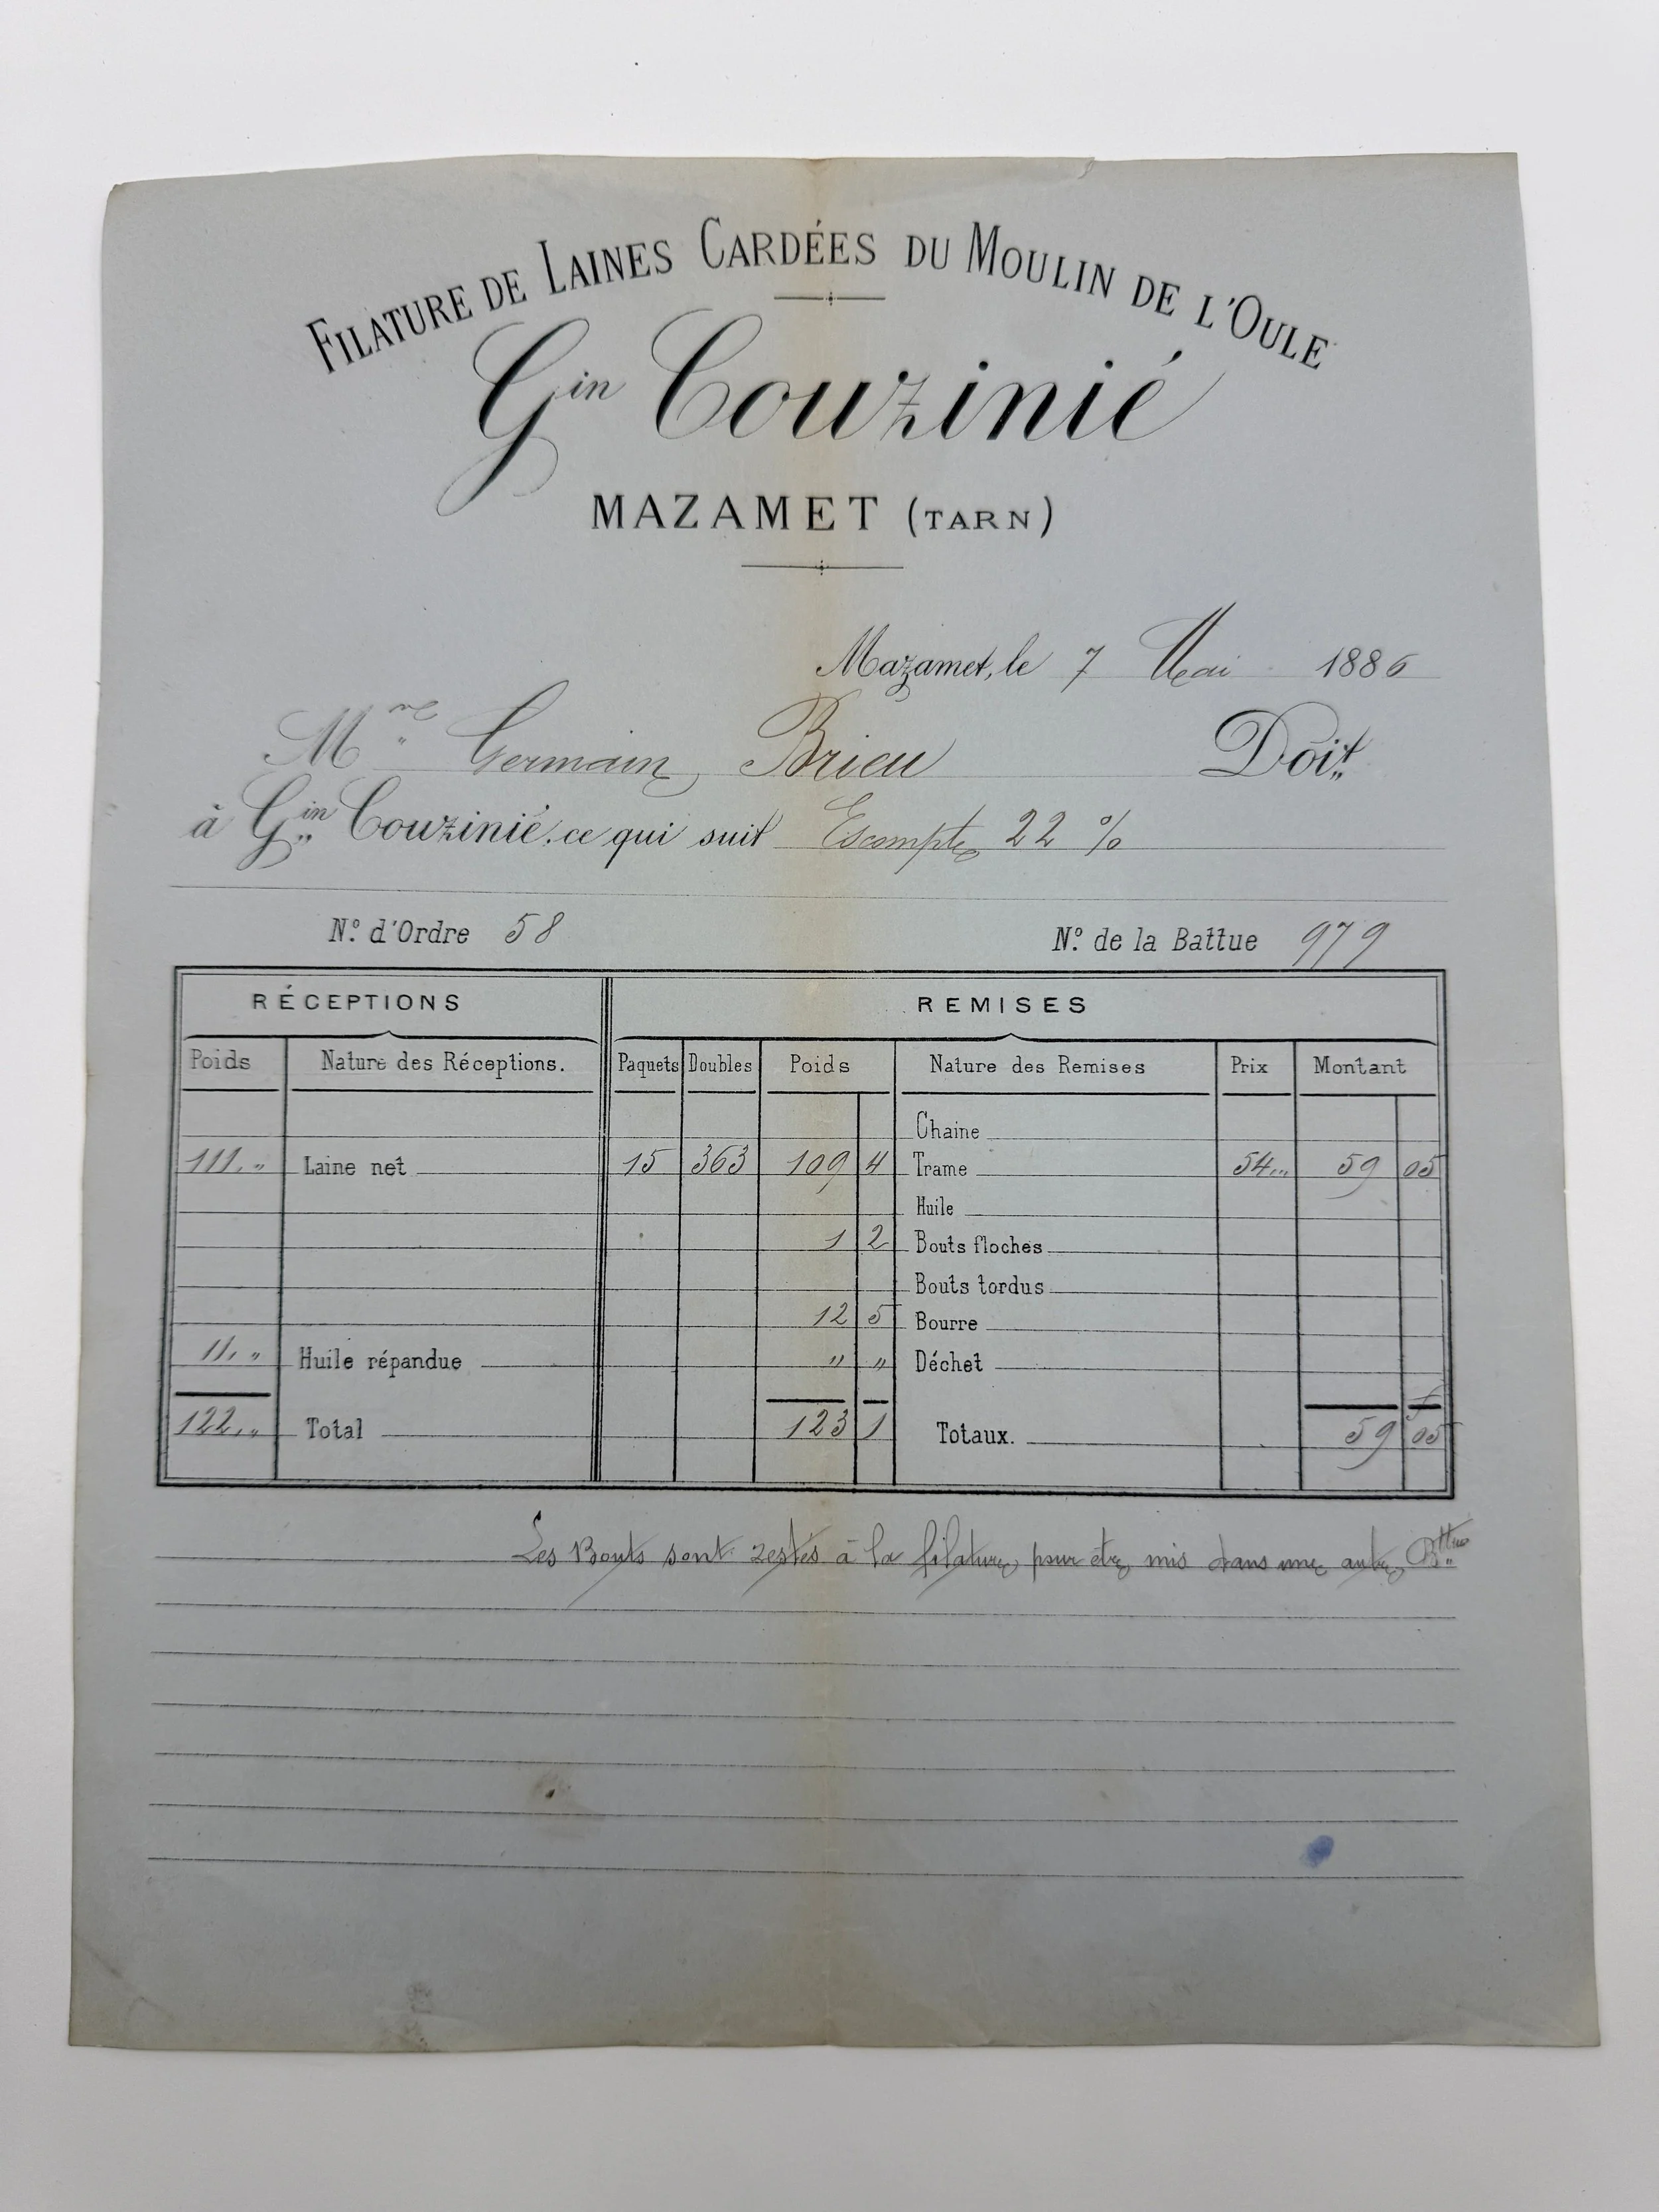 FILATURE DE LAINES CARDÉES DU MOULIN DE L'OULE
Gin Couzinié
MAZAMET (TARN)
Mazamet, le 7 Mai 1886
Germain Brieu Doit
à Gin Couzinié, ce qui suit Escompte 22 %
N.º d'Ordre 58 N.º de la Battue 979
RÉCEPTIONS REMISES
Poids Nature des Réceptions. Paquets Doubles Poids Nature des Remises Prix Montant
Chaine
111 „ Laine net 15 363 109 4 Trame 54 „ 59 05
Huile
1 2 Bouts floches
Bouts tordus
12 5 Bourre
11 „ Huile répandue „ „ Déchet
122 „ Total 123 1 Totaux. 59 05
Les Bouts sont restés à la filature pour être mis dans une autre Bttue